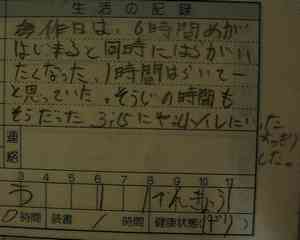 生活の記録
昨日は、6時間めが
はじまると同時にはらがい
たくなった。1時間はらいてー
と思っていた。そうじの時間も
そうだった。3:15にやっとトイレにい
った。
すっきり
した。
連絡
3 4 5 6 7 8 9 10 11
う けんきゅう
0時間 読書 1時間 健康状態(げり)